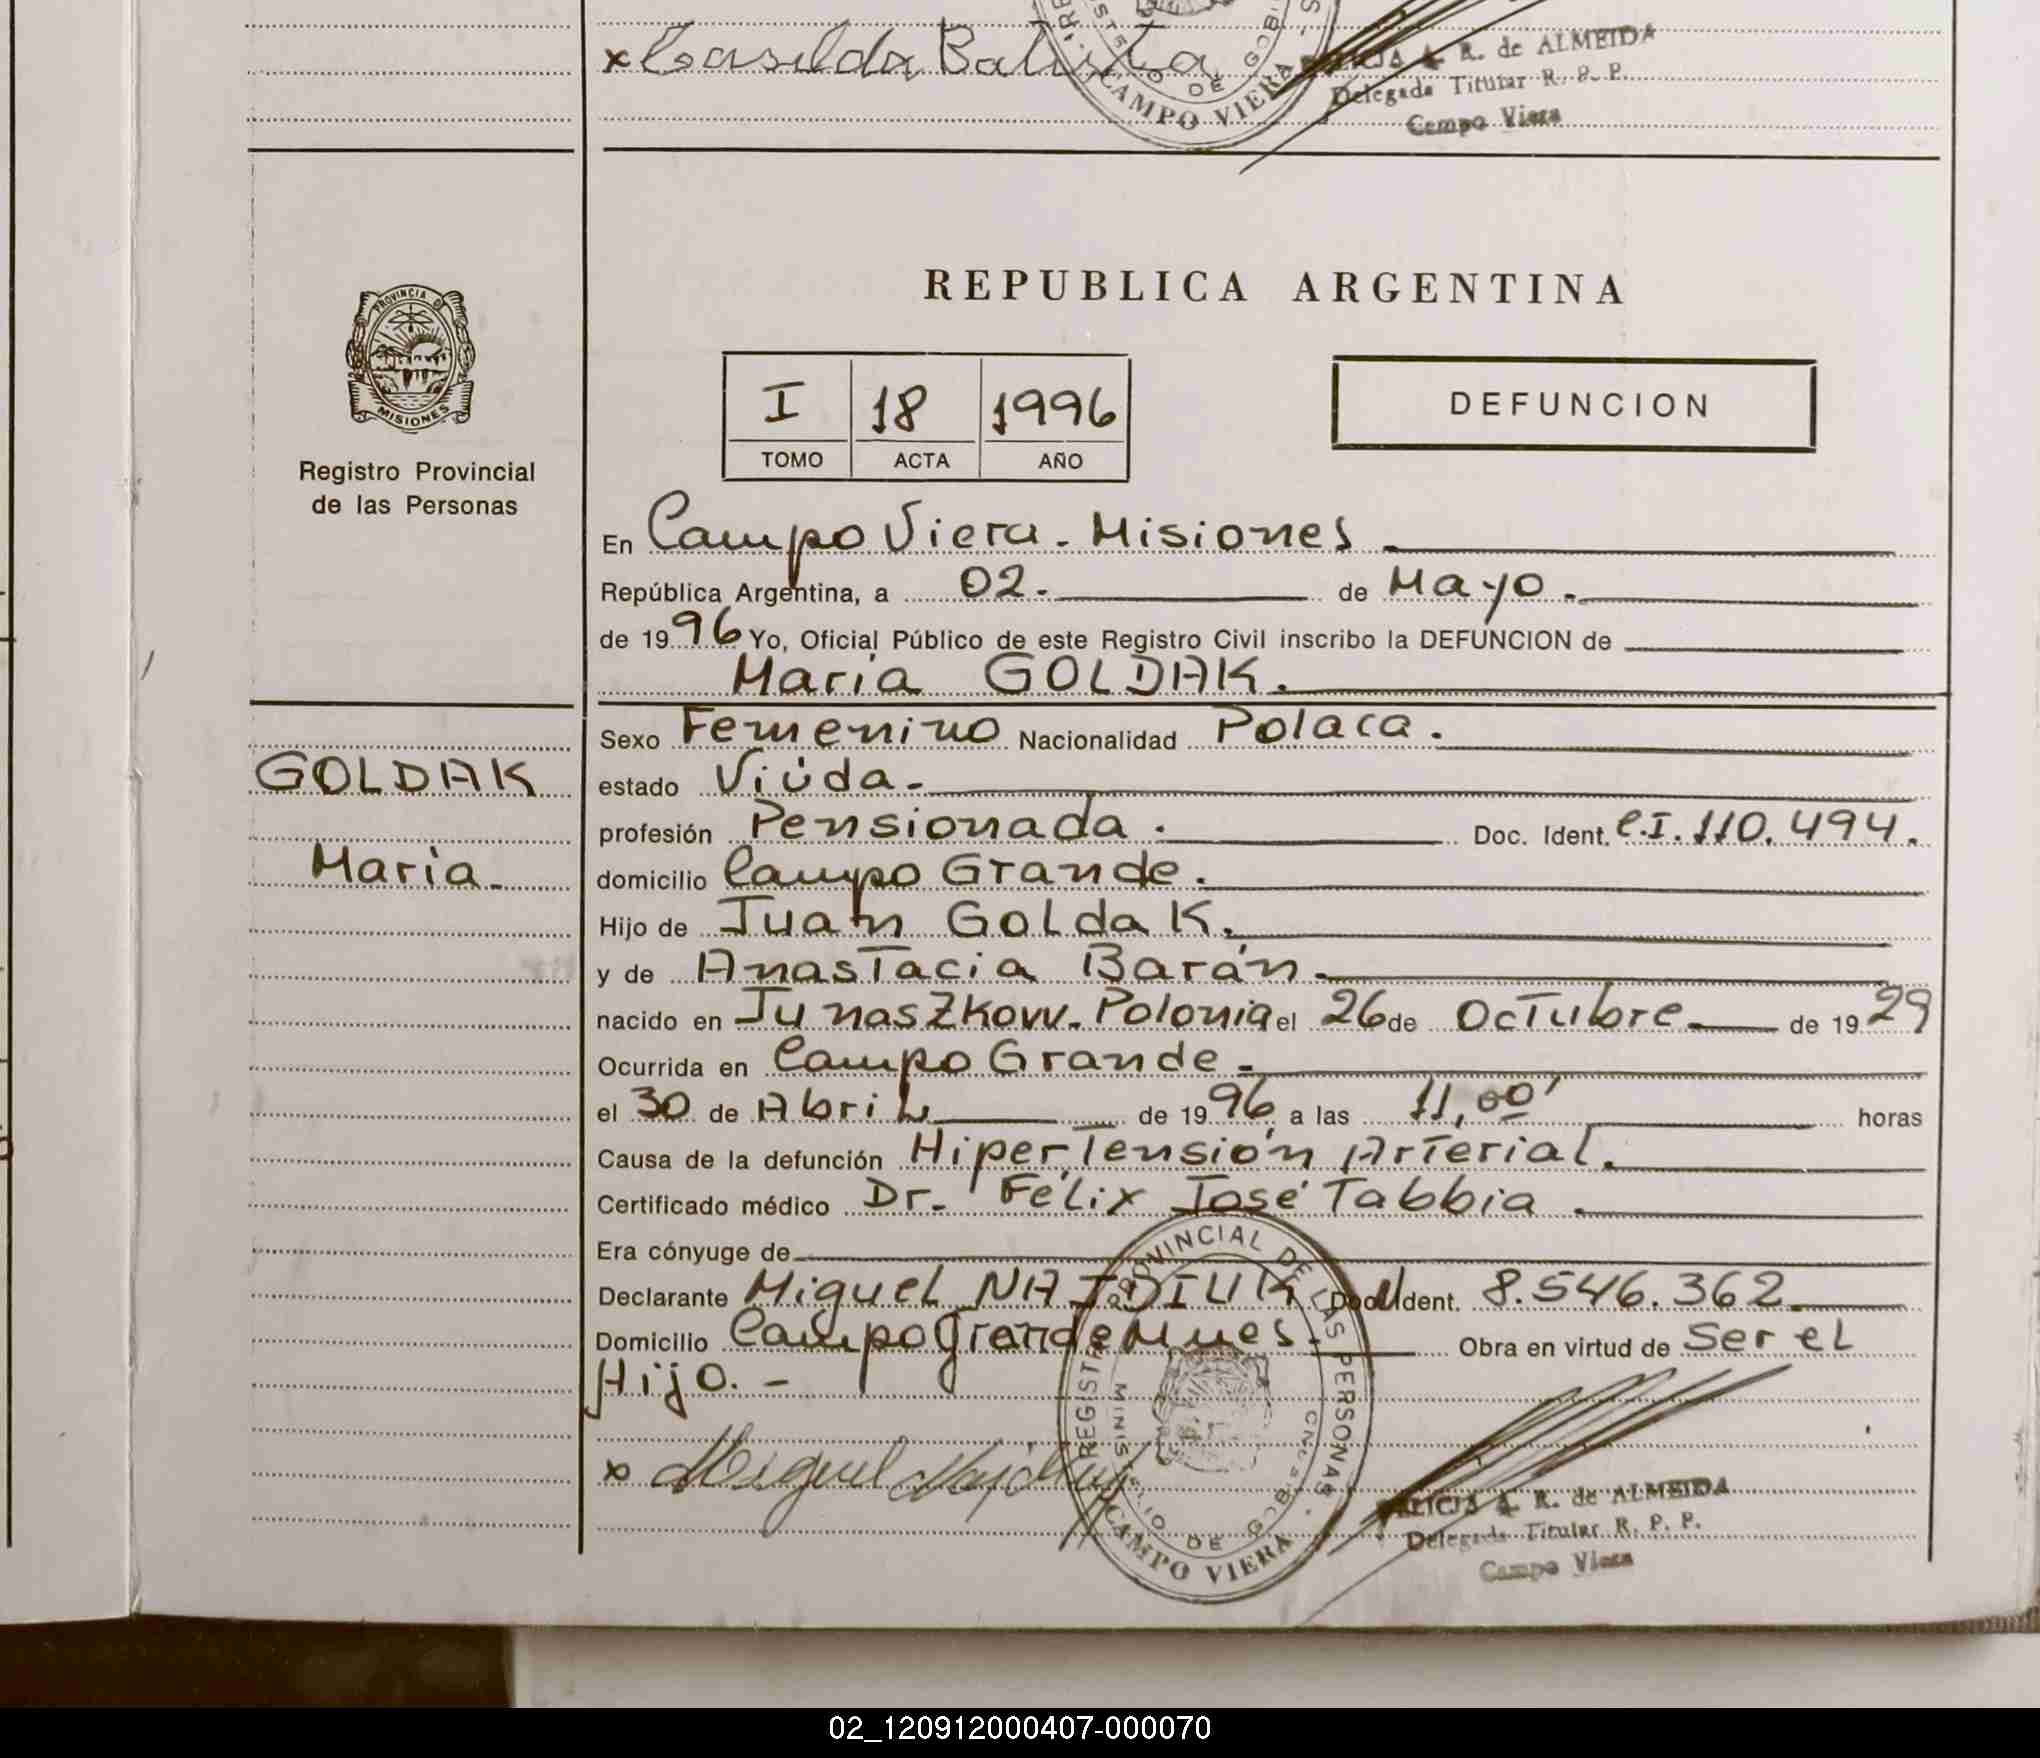 x Casilda Batista
CAMPO VIERA
DE
ALICIA A. R. de ALMEIDA
Delegada Titular R. P. P.
Campo Viera
PROVINCIA DE
MISIONES
Registro Provincial
de las Personas
REPUBLICA ARGENTINA
I 18 1996
TOMO ACTA AÑO
DEFUNCION
En Campo Viera - Misiones -
República Argentina, a 02.- de Mayo.-
de 1996 Yo, Oficial Público de este Registro Civil inscribo la DEFUNCION de
Maria GOLDAK.
GOLDAK
Maria-
Sexo Femenino Nacionalidad Polaca.
estado Viúda-
profesión Pensionada. Doc. Ident. C.I. 110.494.
domicilio Campo Grande.
Hijo de Juan Goldak.
y de Anastacia Barán-
nacido en Junaszkow-Polonia el 26 de Octubre de 1929
Ocurrida en Campo Grande-
el 30 de Abril de 1996 a las 11,00' horas
Causa de la defunción Hipertensión Arterial.
Certificado médico Dr. Félix José Tabbia.
Era cónyuge de
Declarante Miguel NAJDIUK Doc. Ident. 8.546.362.
Domicilio Campo Grande Mnes. Obra en virtud de Ser el
Hijo.-
x Miguel Najdiuk
REGISTRO PROVINCIAL DE LAS PERSONAS
MINISTERIO DE GOBIERNO
CAMPO VIERA
ALICIA A. R. de ALMEIDA
Delegada Titular R. P. P.
Campo Viera
02_120912000407-000070